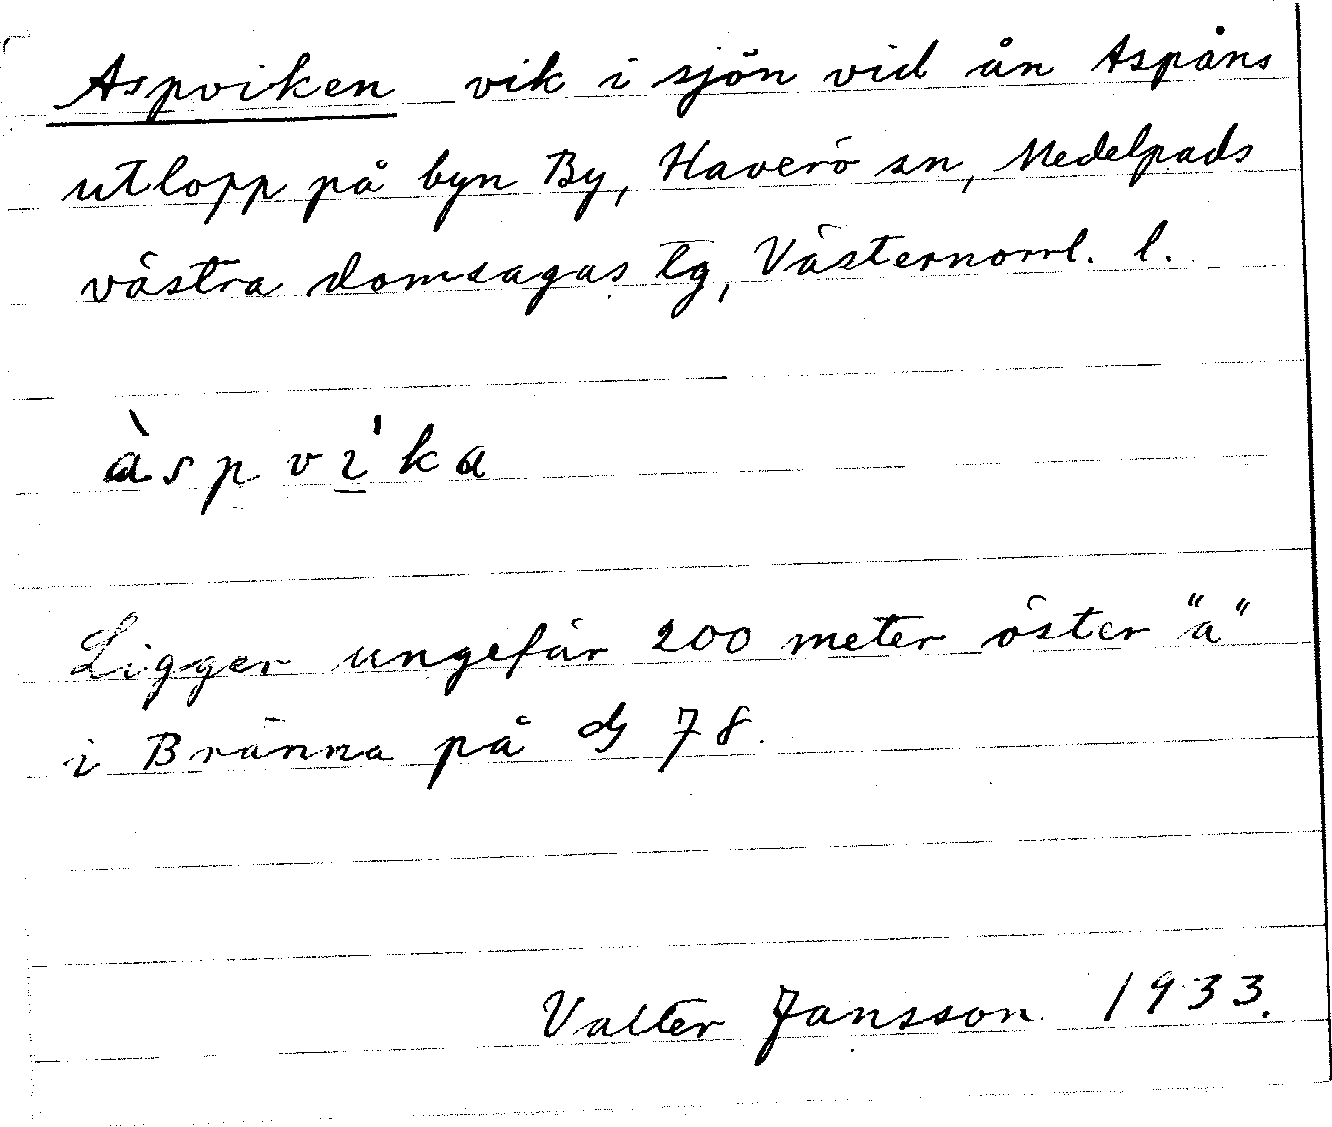 Aspviken vik i sjön vid ån Aspåns
utlopp på byn By, Haverö sn, Medelpads
västra domsagas tg, Västernorrl. l.
àspvi̱ˈka
Ligger ungefär 200 meter öster "a"
i Bränna på 78.
Valter Jansson 1933.